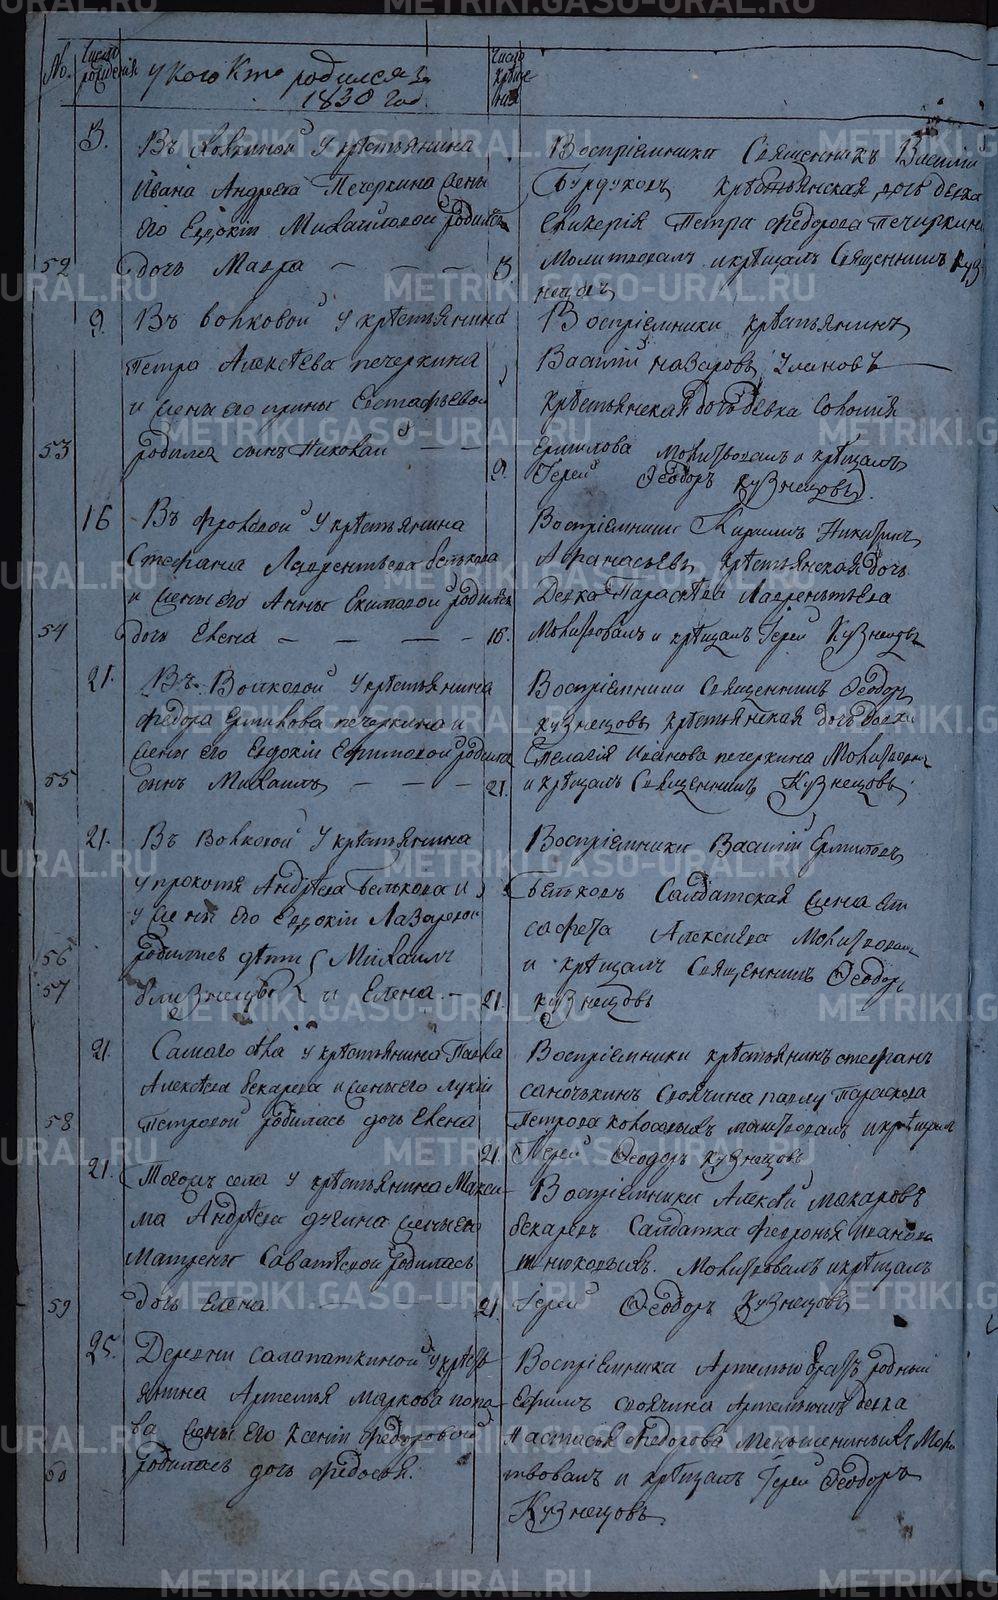 No.
Число рожденія
У кого кто родился за
1830 год.
Число крещенія
3.
Въ Волковой у крѣстьянина
Ивана Андреева Печеркина жены
его Евдокіи Михайловой родилась
52
дочь Мавра — — — 3.
Воспріемники Священникъ Василій
Бурдуковъ крѣстьянская дочь девка
Гликерія Петра Федорова Печеркина
Молитвовалъ и крѣщалъ Священникъ Куз-
нецовъ
9.
Въ волковой у крѣстьянина
Петра Алексѣева печеркина
и жены его ирины Евстафьевой
53
родился сынъ Николай — — 9.
Воспріемники крѣстьянинъ
Василій назаровъ Улановъ
крѣстьянская дочь девка Соломія
Ермилова молитвовалъ и крѣщалъ
Іерей Ѳеодоръ кузнецовъ.
16
Въ фроловой у крѣстьянина
Стефана Лаврентьева белькова
и жены его Анны Екимовой родилась
54
дочь Елена — — — — 16.
Воспріемники Кирилъ Никитинъ
Афанасьевъ крѣстьянская дочь
Девка Параскева Лаврентьева
Молитвовалъ и крѣщалъ Іерей Кузнецовъ
21.
Въ Волковой у крѣстьянина
Федора Ермилова печеркина и
жены его Евдокіи Ефимовой родился
55
сынъ Михаилъ — — — 21.
Воспріемники Священникъ Ѳеодоръ
кузнецовъ крѣстьянская дочь девка
Пелагія Иванова печеркина Молитвовалъ
и крѣщалъ Священникъ Кузнецовъ
21.
Въ Волковой у крѣстьянина
у прокопя Андрѣева Белькова и
у жены его Евдокіи Лазаревой
56
родились дѣти Михаилъ
57
близнецы и Елена — 21.
Воспріемники Василій Ермиловъ
бельковъ Салдатская жена Ели
савета Алексиева Молитвовалъ
и крѣщалъ Священникъ Ѳеодоръ
кузнецовъ
21.
Самаго села у крѣстьянина Павла
Алексѣева бекарева и жены его лукіи
58
петровой родилась дочь Елена
21.
Воспріемники крѣстьянинъ стефанъ
саночькинъ своячина павлу Параскева
Петрова колосовыхъ молитвовалъ и крѣщалъ
Іерей Ѳеодоръ кузнецовъ
21.
Тогожъ села у крѣстьянина Макси-
ма Андрѣева дугина жены его
Матрены Саватѣевой родилась
59
дочь Елена — — — 21.
Воспріемники Алексѣй макаровъ
бекаревъ Салдатка Февронья иванова
Молитвовалъ и крѣщалъ
Іерей Ѳеодоръ Кузнецовъ
25.
Деревни салапаткиной у крѣсть
янина Артемья маркова попо-
ва жены его Ксеніи Федоровой
60
родилась дочь Федосья.
Воспріемника Артемью братъ родный
Ефимъ своячина Артемьина девка
Настасья Федорова Меньшениныхъ Моли
твовалъ и крѣщалъ Іерей Ѳеодоръ
Кузнецовъ
METRIKI.GASO-URAL.RU